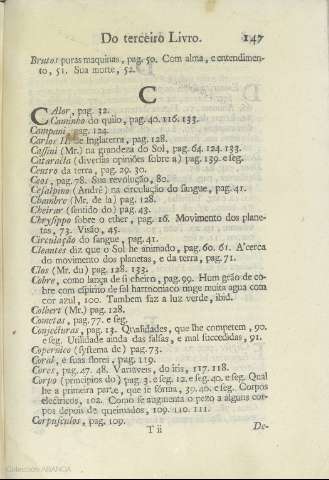 Do terceiro Livro. 147
Brutos puras maquinas, pag. 50. Com alma, e entendimen-
to, 51. Sua morte, 52.
C
CAlor, pag. 32.
Caminho do quilo, pag. 40. 116. 133.
Campani, pag. 124.
Carlos II. de Inglaterra, pag. 128.
Cassini (Mr.) na grandeza do Sol, pag. 64. 124. 133.
Cataracta (diversas opiniões sobre a) pag. 139. e seg.
Centro da terra, pag. 29. 30.
Ceos, pag. 78. Sua revolução, 80.
Cesalpino (André) na circulação do sangue, pag. 41.
Chambre (Mr. de la) pag. 128.
Cheirar (sentido do) pag. 43.
Chrysippo sobre o ether, pag. 16. Movimento dos plane-
tas, 73. Visão, 45.
Circulação do sangue, pag. 41.
Cleantes diz que o Sol he animado, pag. 60. 61. A'cerca
do movimento dos planetas, e da terra, pag. 71.
Clos (Mr. du) pag. 128. 133.
Cobre, como lança de si cheiro, pag. 99. Hum grão de co-
bre com espirito de sal harmoniaco tinge muita agua com
cor azul, 100. Tambem faz a luz verde, ibid.
Colbert (Mr.) pag. 128.
Cometas, pag. 77. e seg.
Conjecturas, pag. 13. Qualidades, que lhe competem, 90.
e seg. Utilidade ainda das falsas, e mal succedidas, 91.
Copernico (systema de) pag. 73.
Coral, e suas flores, pag. 119.
Cores, pag. 47. 48. Variaveis, do iris, 117. 118.
Corpo (principios do) pag. 3. e seg. 12. e seg. 40. e seg. Qual
he a primeira parte, que se fórma, 39. 40. e seg. Corpos
electricos, 102. Como se augmenta o pezo a alguns cor-
pos depois de queimados, 109. 110. 111.
Corpusculos, pag. 109.
T ii De-
Colección ABANCA